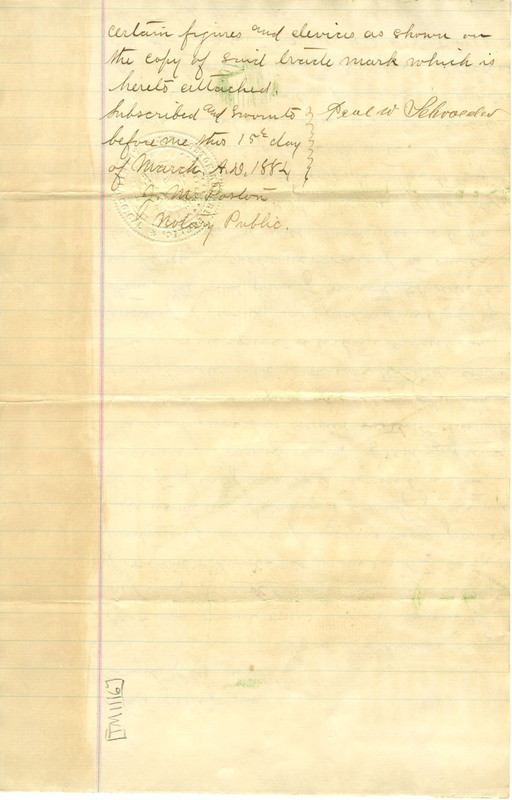 certain figures and devices as shown on
the copy of said trade mark which is
hereto attached.
Subscribed and sworn to } Schroeder
before me this 15th day
of March A.D. 1884
Notary Public.
[TM1116]